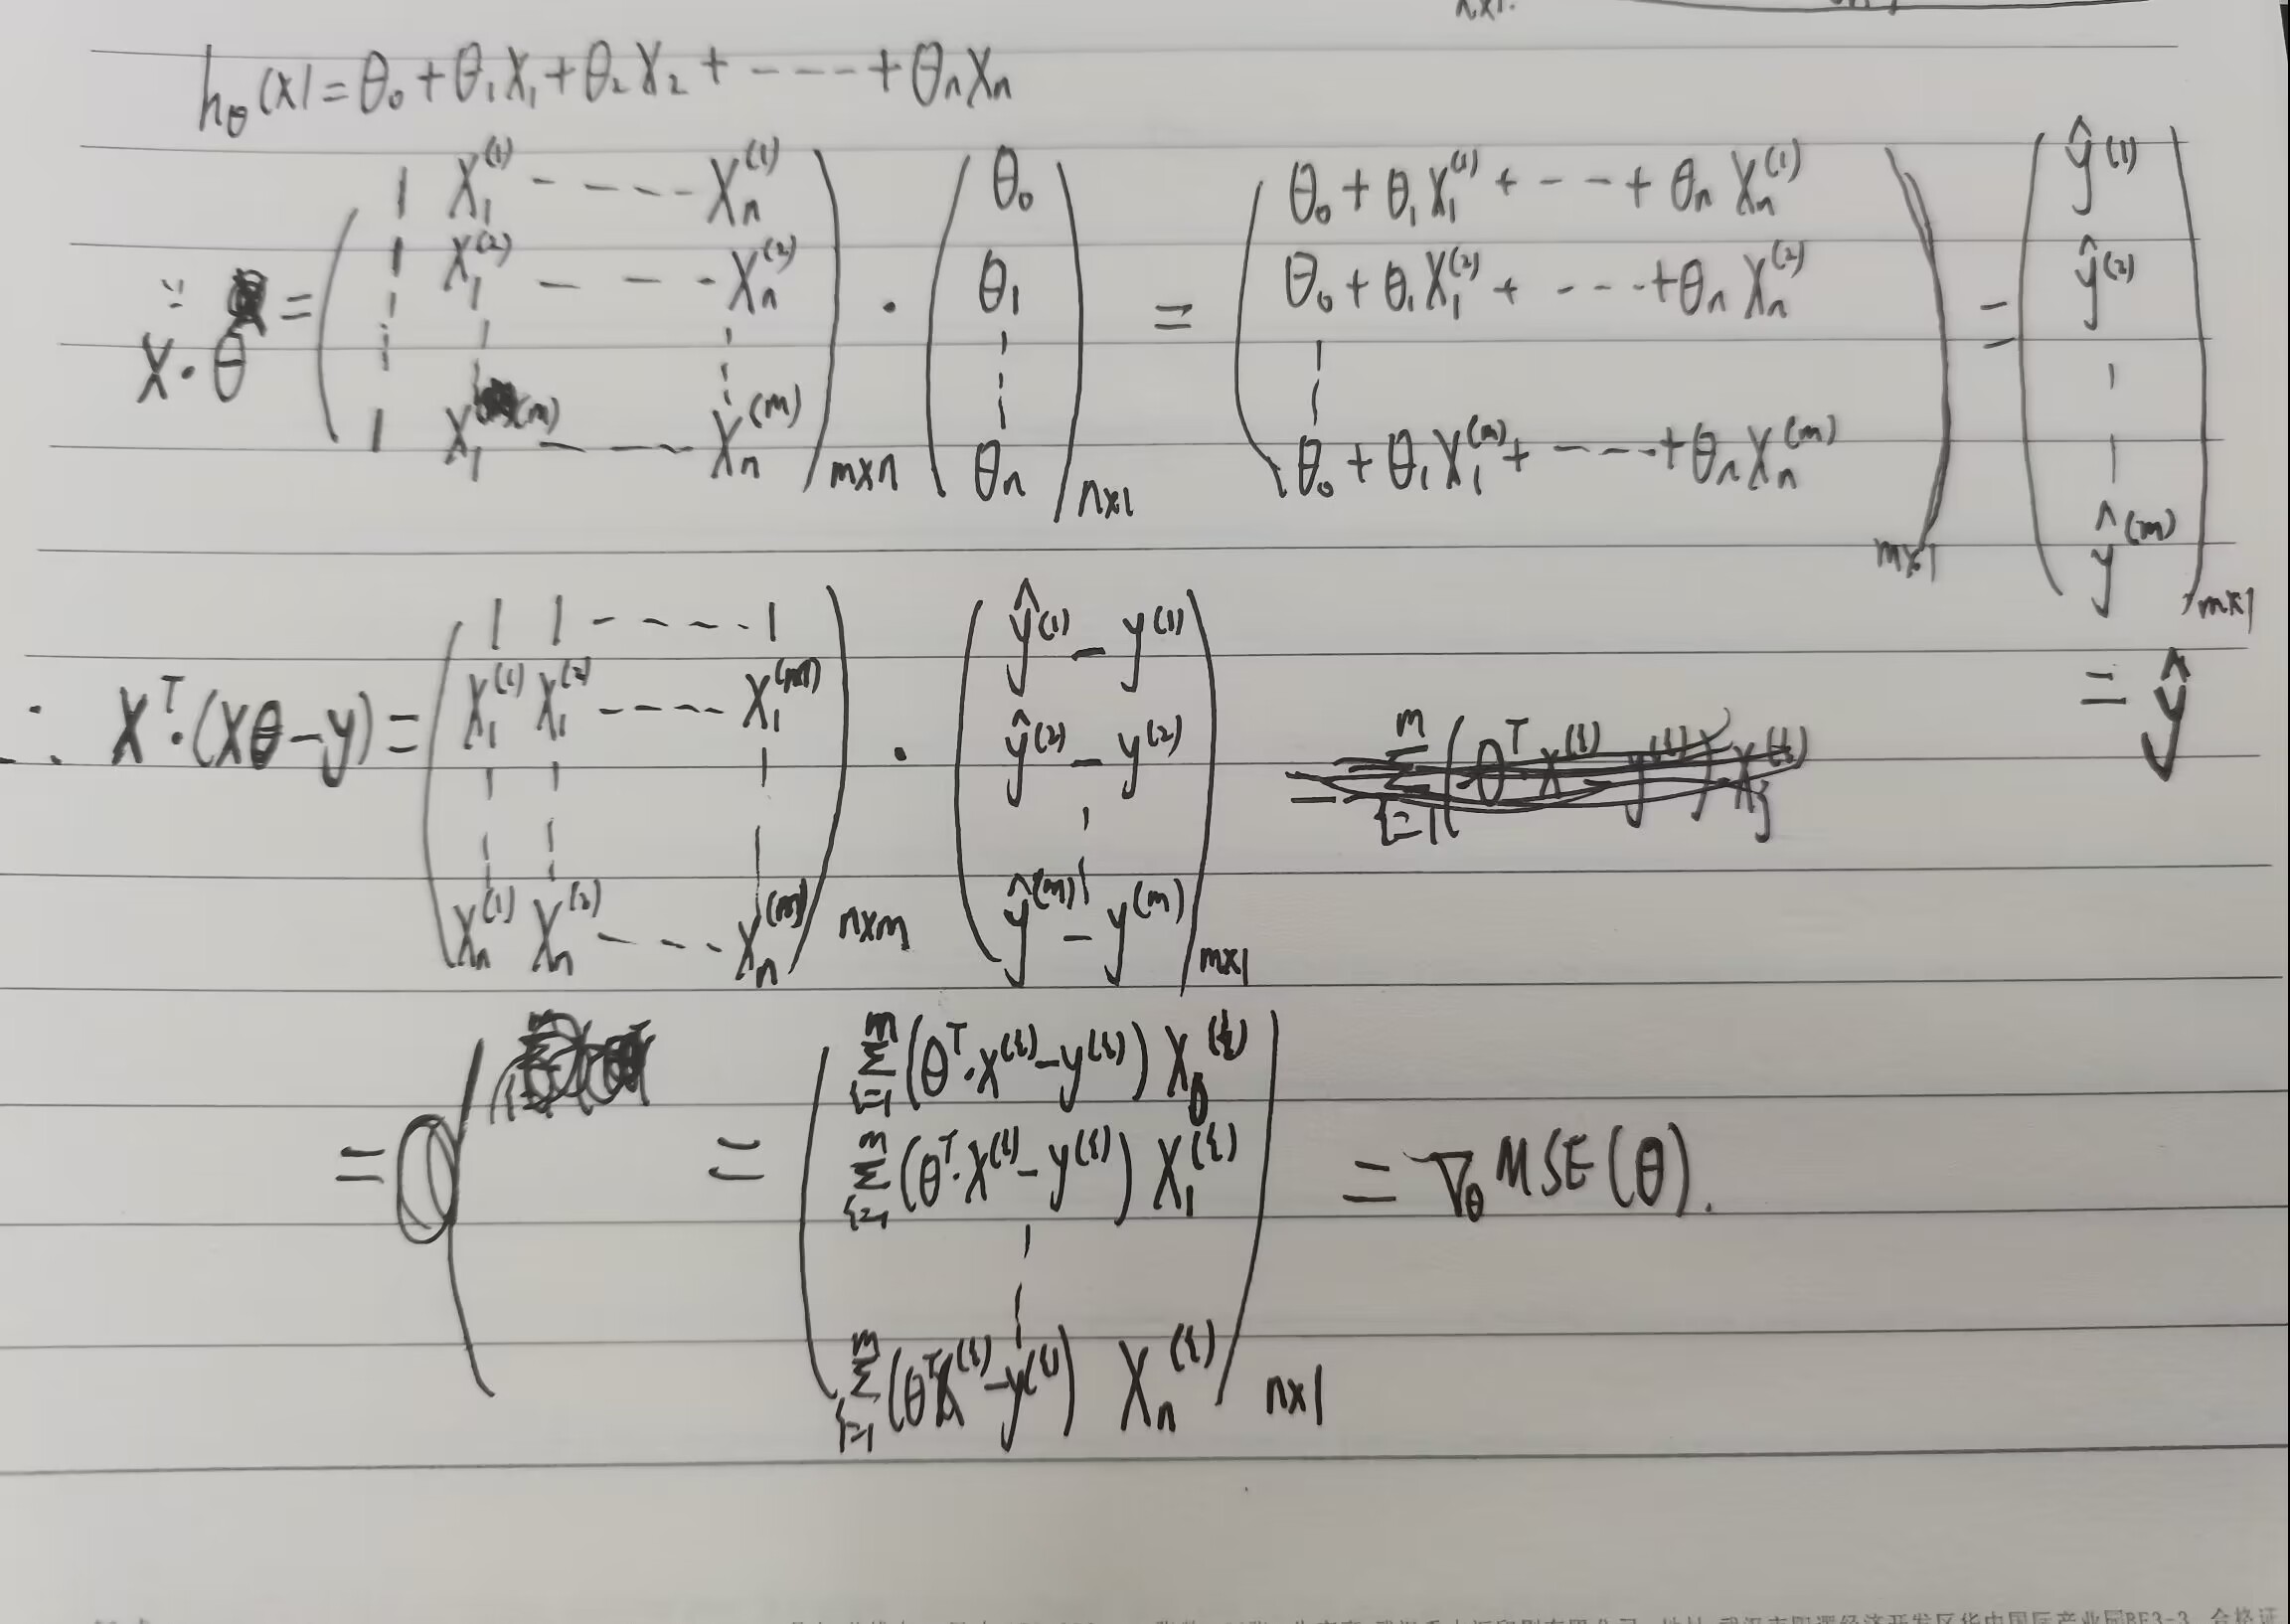 nx1.
hθ(x) = θ₀ + θ₁X₁ + θ₂X₂ + ----- + θₙXₙ
∵ X·θ = ( 1 X₁⁽¹⁾ ----- Xₙ⁽¹⁾ ; 1 X₁⁽²⁾ ---- Xₙ⁽²⁾ ; ⋮ ; 1 X₁⁽ᵐ⁾ ----- Xₙ⁽ᵐ⁾ )mxn · ( θ₀ ; θ₁ ; ⋮ ; θₙ )nx1 = ( θ₀ + θ₁X₁⁽¹⁾ + ---- + θₙXₙ⁽¹⁾ ; θ₀ + θ₁X₁⁽²⁾ + ---- + θₙXₙ⁽²⁾ ; ⋮ ; θ₀ + θ₁X₁⁽ᵐ⁾ + ---- + θₙXₙ⁽ᵐ⁾ )mx1 = ( ŷ⁽¹⁾ ; ŷ⁽²⁾ ; ⋮ ; ŷ⁽ᵐ⁾ )mx1
= ŷ
∴ Xᵀ·(Xθ-y) = ( 1 1 ----- 1 ; X₁⁽¹⁾ X₁⁽²⁾ ----- X₁⁽ᵐ⁾ ; ⋮ ; Xₙ⁽¹⁾ Xₙ⁽²⁾ ----- Xₙ⁽ᵐ⁾ )nxm · ( ŷ⁽¹⁾ - y⁽¹⁾ ; ŷ⁽²⁾ - y⁽²⁾ ; ⋮ ; ŷ⁽ᵐ⁾ - y⁽ᵐ⁾ )mx1
= = ( Σᵢ₌₁ᵐ (θᵀ·X⁽ⁱ⁾ - y⁽ⁱ⁾) X₀⁽ⁱ⁾ ; Σᵢ₌₁ᵐ (θᵀ·X⁽ⁱ⁾ - y⁽ⁱ⁾) X₁⁽ⁱ⁾ ; ⋮ ; Σᵢ₌₁ᵐ (θᵀX⁽ⁱ⁾ - y⁽ⁱ⁾) Xₙ⁽ⁱ⁾ )nx1 = ∇θ MSE(θ).